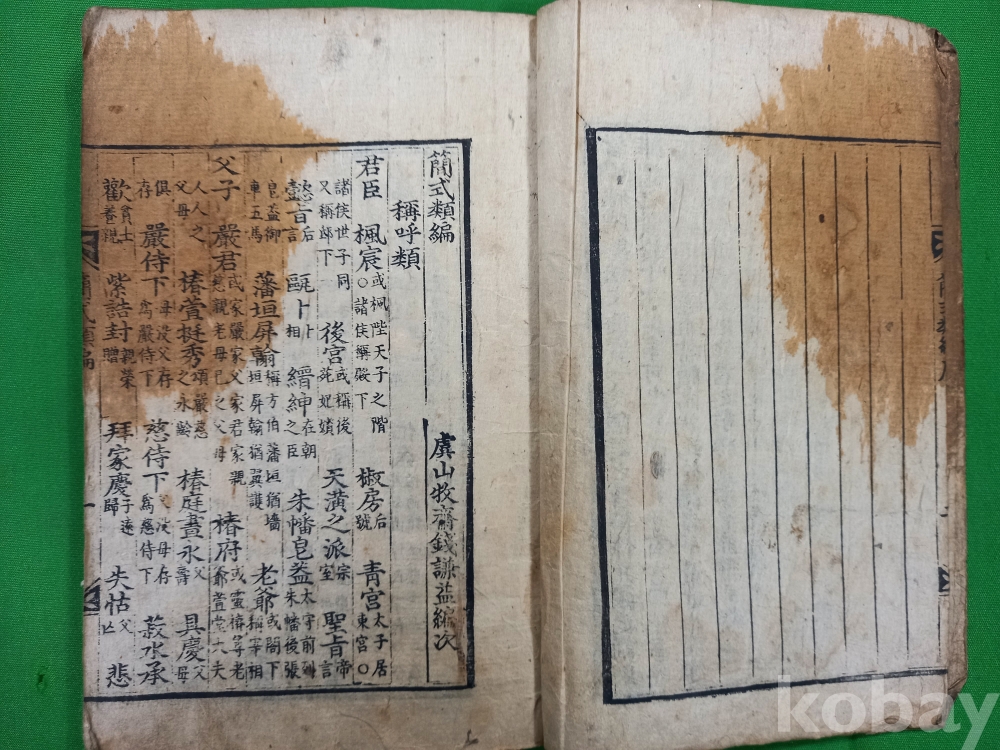 簡式類編
虞山牧齋錢謙益編次
稱呼類
君臣 楓宸 或楓陛天子之階 ○諸侯稱殿下 椒房 后號 青宮 太子居東宮○
諸侯世子同又稱邸下 後宮 或稱後苑妃嬪 天潢之派 宗室 聖旨 帝言
懿旨 后言 甌卜 卜相 縉紳 在朝之臣 朱幡皂盖 太守前列朱幡後張
皂盖御車五馬 藩垣屏翰 稱方伯藩垣猶墻垣屏翰猶翼護 老爺 或閤下稱宰相
父子 嚴君 或家嚴家父家君家親慈親老母己之父母 椿府 或靈椿尊老爺萱堂大夫
人人之父母 椿萱挺秀 頌嚴慈之永齡 椿庭晝永 父壽 具慶 父母
俱存 嚴侍下 母没父存爲嚴侍下 慈侍下 父没母存爲慈侍下 菽水承
歡 貧士養親 紫誥封 親榮贈 拜家慶 子遠歸 失怙 父亡 悲
簡式類編
一
kobay